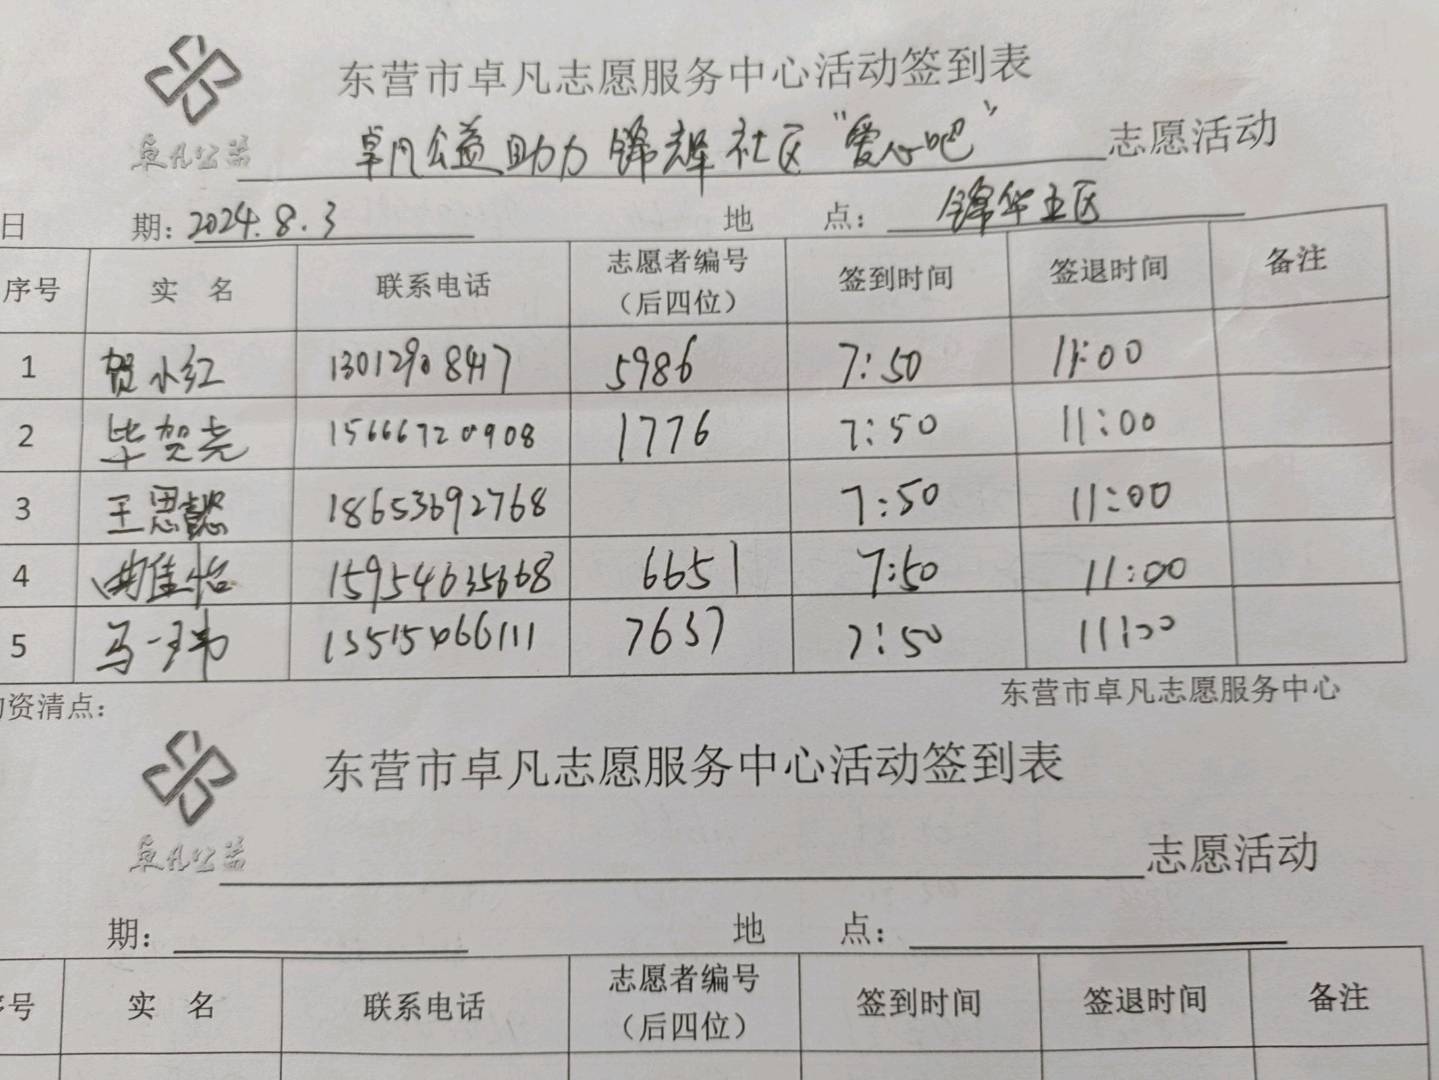 东营市卓凡志愿服务中心活动签到表
卓凡公益助力锦辉社区“爱心吧” 志愿活动
卓凡公益
日 期：2024.8.3 地 点：锦华五区
序号 实 名 联系电话 志愿者编号（后四位） 签到时间 签退时间 备注
1 贺小红 13012908417 5986 7:50 11:00
2 毕贺尧 15666720908 1776 7:50 11:00
3 王思懿 18653692768 7:50 11:00
4 曲佳怡 15954635668 6651 7:50 11:00
5 马一玮 13515466111 7637 7:50 11:00
资清点： 东营市卓凡志愿服务中心
东营市卓凡志愿服务中心活动签到表
卓凡公益 志愿活动
期： 地 点：
序号 实 名 联系电话 志愿者编号（后四位） 签到时间 签退时间 备注